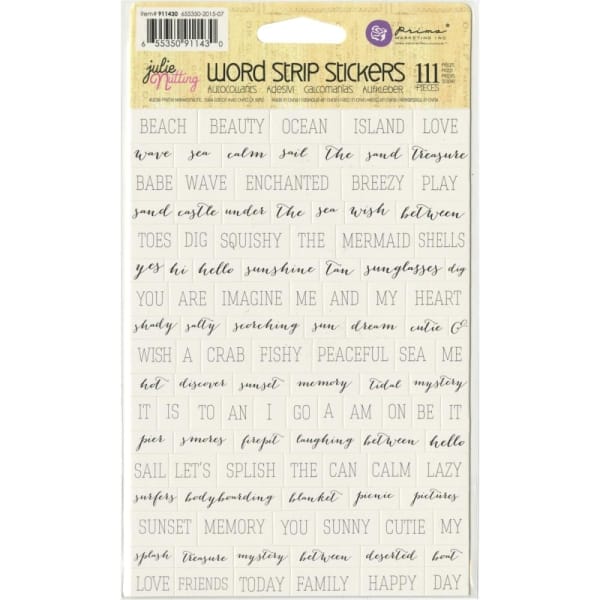 Item# 911430 655350-2015-07
6 55350 91143 0
prima
MARKETING INC
julie Nutting
WORD STRIP STICKERS 111 PIECES
AUTOCOLLANTS ADESIVI CALCOMANIAS AUFKLEBER
BEACH BEAUTY OCEAN ISLAND LOVE
wave sea calm sail the sand treasure
BABE WAVE ENCHANTED BREEZY PLAY
sand castle under the sea wish between
TOES DIG SQUISHY THE MERMAID SHELLS
yes hi hello sunshine tan sunglasses dig
YOU ARE IMAGINE ME AND MY HEART
shady salty scorching sun dream cutie
WISH A CRAB FISHY PEACEFUL SEA ME
hot discover sunset memory tidal mystery
IT IS TO AN I GO A AM ON BE IT
pier s'mores firepit laughing between hello
SAIL LET'S SPLISH THE CAN CALM LAZY
surfers bodyboarding blanket picnic pictures
SUNSET MEMORY YOU SUNNY CUTIE MY
splash treasure mystery between deserted boat
LOVE FRIENDS TODAY FAMILY HAPPY DAY